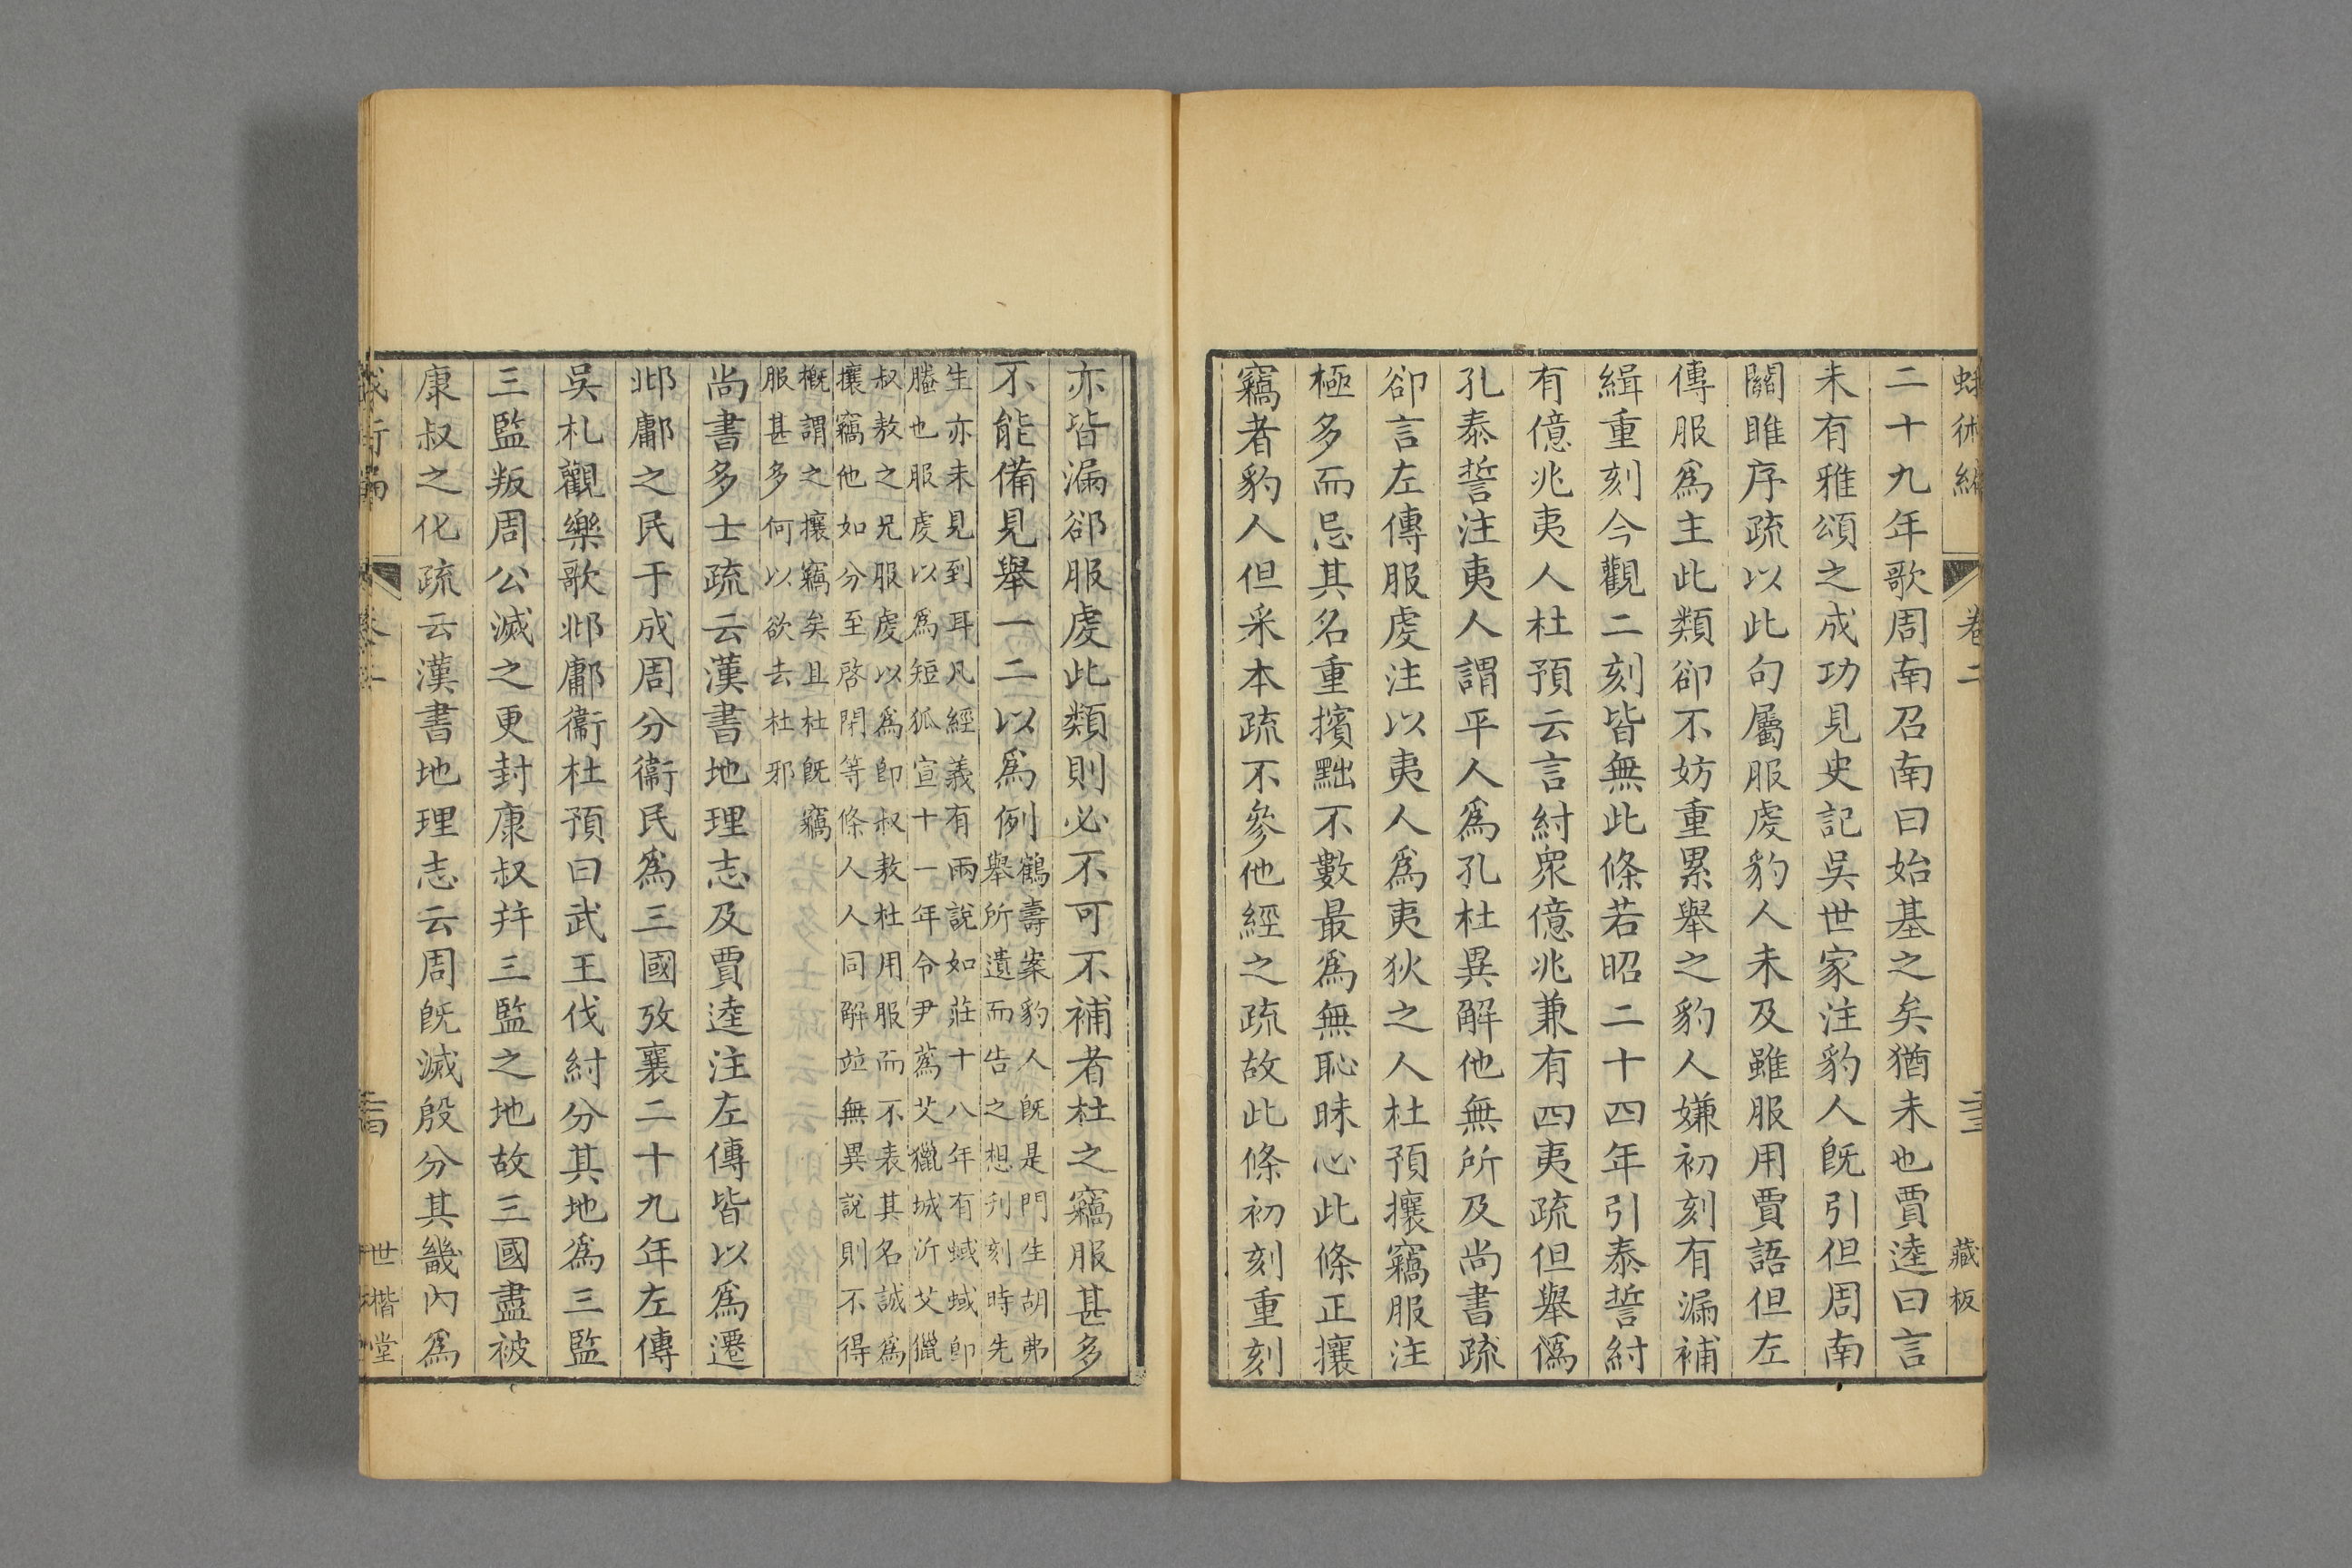 蛾術編
卷二
藏板
二十九年歌周南召南曰始基之矣猶未也賈逵曰言
未有雅頌之成功見史記吳世家注豹人旣引但周南
關雎序疏以此句屬服虔豹人未及雖服用賈語但左
傳服爲主此類卻不妨重累舉之豹人嫌初刻有漏補
緝重刻今觀二刻皆無此條若昭二十四年引泰誓紂
有億兆夷人杜預云言紂衆億兆兼有四夷疏但舉僞
孔泰誓注夷人謂平人爲孔杜異解他無所及尚書疏
卻言左傳服虔注以夷人爲夷狄之人杜預攘竊服注
極多而忌其名重擯黜不數最爲無恥昧心此條正攘
竊者豹人但采本疏不參他經之疏故此條初刻重刻
亦皆漏卻服虔此類則必不可不補者杜之竊服甚多
不能備見舉一二以爲例
鶴壽案豹人旣是門生胡弗
舉所遺而告之想刋刻時先
生亦未見到耳凡經義有兩說如莊十八年有蜮蜮卽
螣也服虔以爲短狐宣十一年令尹蒍艾獵城沂艾獵
叔敖之兄服虔以爲卽叔敖杜用服而不表其名誠爲
攘竊他如分至啓閉等條人人同解竝無異說則不得
槪謂之攘竊矣且杜旣竊
服甚多何以欲去杜邪
尚書多士疏云漢書地理志及賈逵注左傳皆以爲遷
邶鄘之民于成周分衞民爲三國攷襄二十九年左傳
吳札觀樂歌邶鄘衞杜預曰武王伐紂分其地爲三監
三監叛周公滅之更封康叔幷三監之地故三國盡被
康叔之化疏云漢書地理志云周旣滅殷分其畿內爲
世楷堂